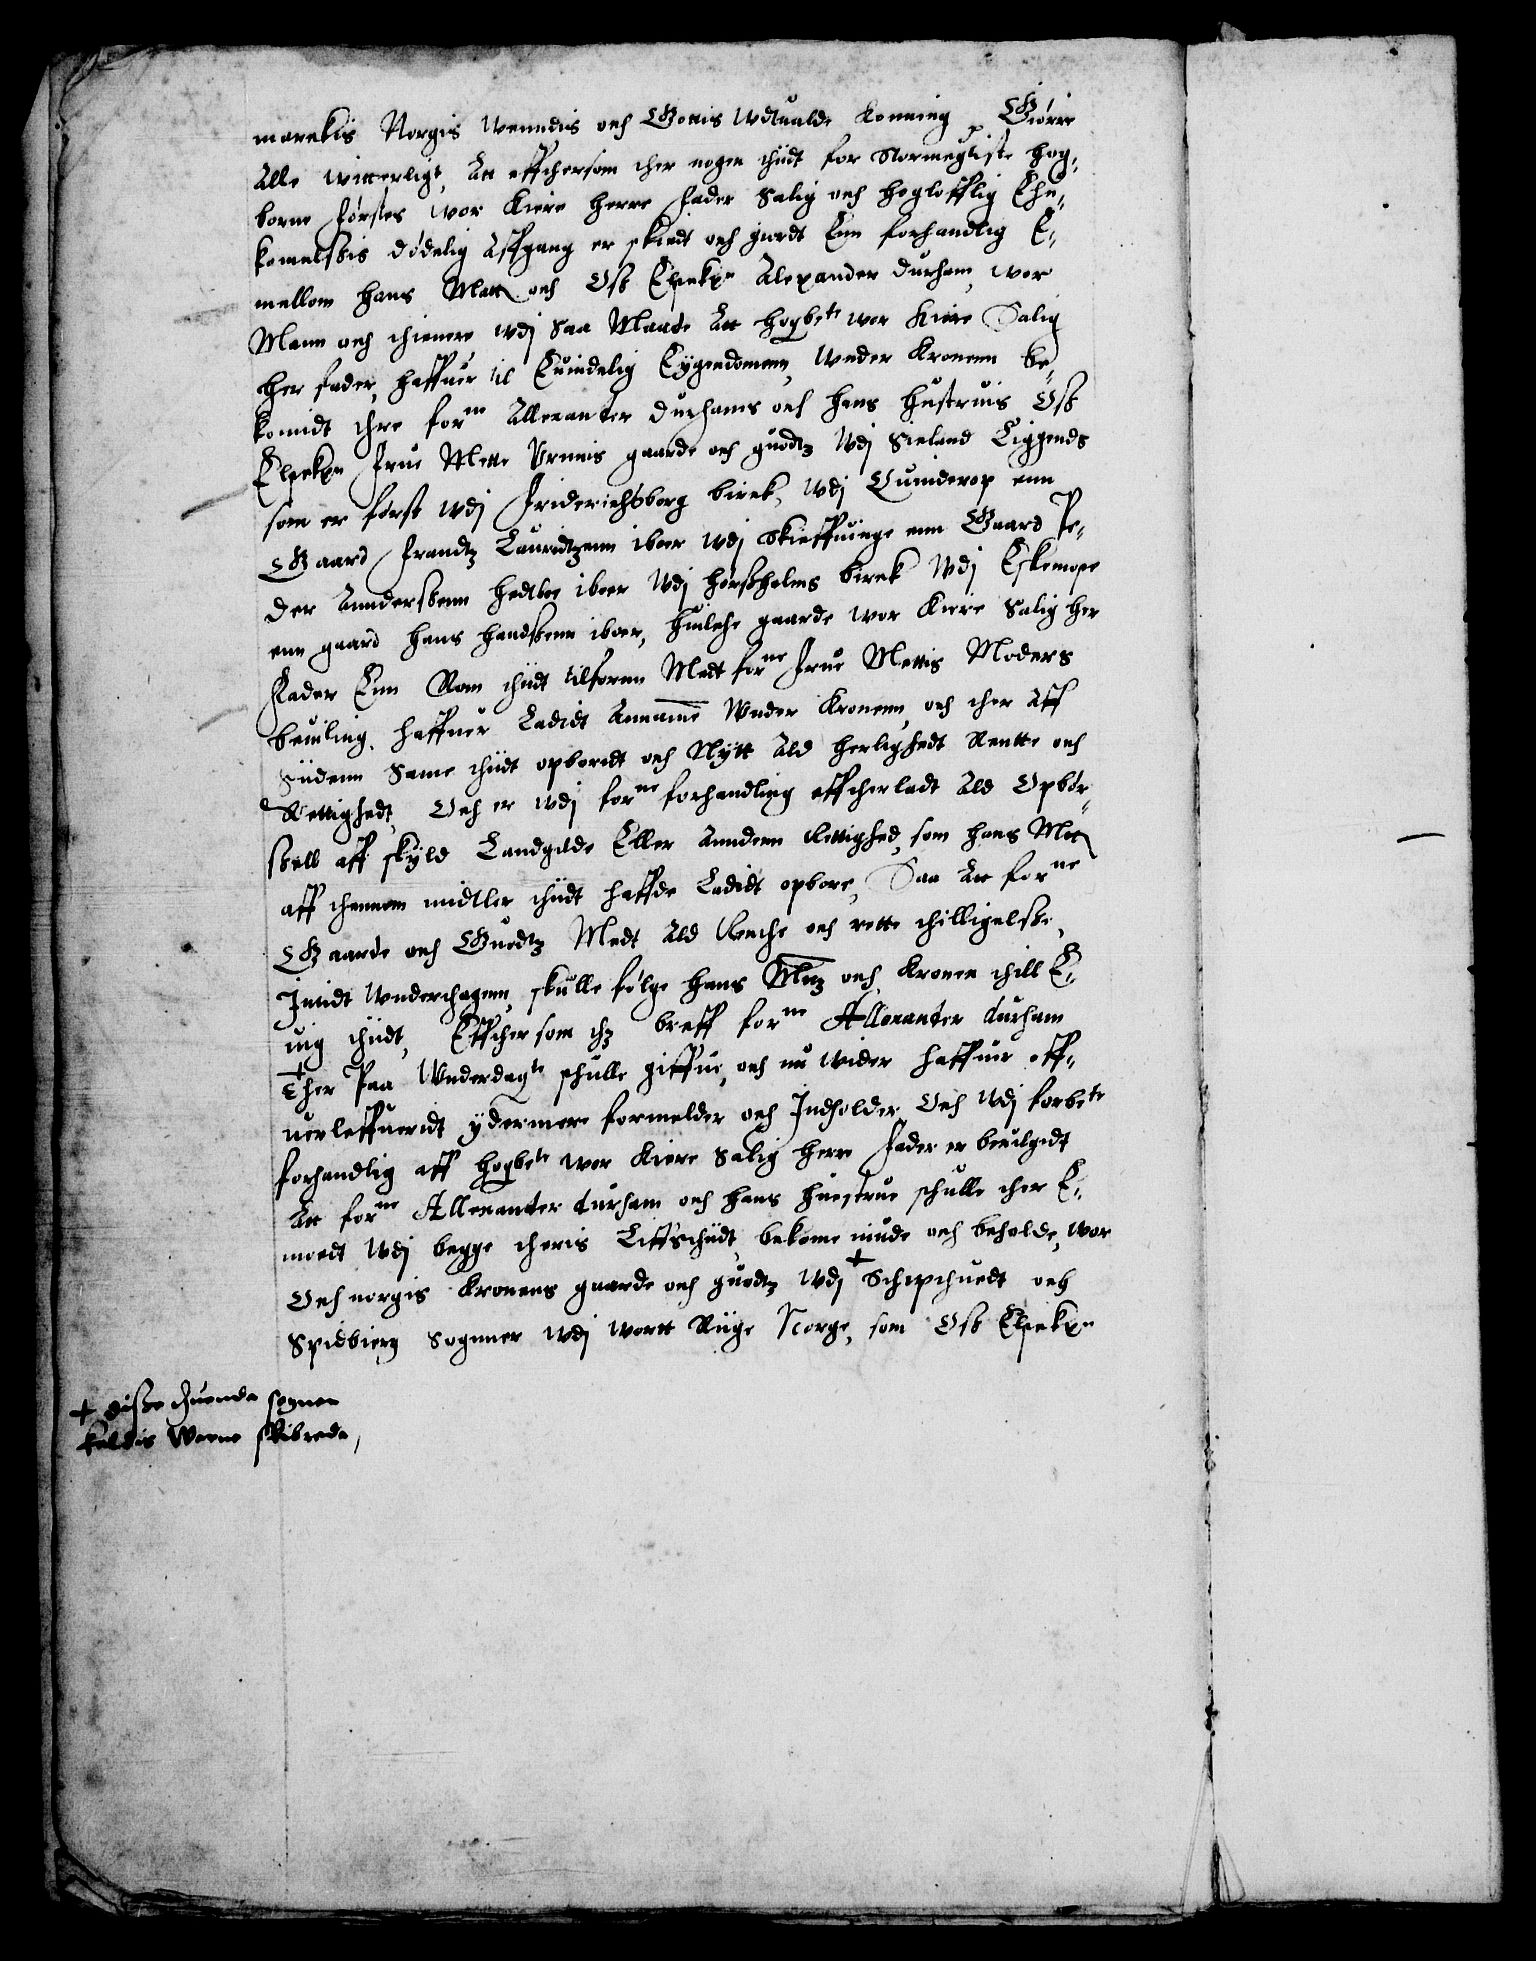 marckis Norgis Wenndis och Gottis Wdtualde Konning Giørre
Alle witterligt, Att effthersom ther nogen thiidt for Stormegtiste hog-
borne Førstes wor Kiere Herre Fader Salig och hoglofflig Ehu-
komelsis dødelig Affgang er skiedt och giordt Enn forhandlig E-
mellom hans Matt och Oss Elskx Alexander durham, wor
Mann och thienere wdj saa Maade Att hogbete wor kiere Salig
Her fader, haffuer til Euindelig Eÿgendomenn, Wnder Kronenn be-
komidt thre forne Allexanter Durhams och hans Hustruis Oss
Elskx Frue Mette Vrnnis gaarde och guodtz Wdj Sieland Liggends
som er først wdj Friderichsborg birck, Wdj Quinderop enn
Gaard Frandtz Lauridtzenn iboer wdj Skieffuinge enn Gaard Pe-
der Anderssenn Hedtboe iboer Wdj Hørssholms birck Wdj Eskemose
enn gaard Hans Handssenn iboer, Huilche gaarde wor Kiere Salig Her
Fader Enn Rom thiidt tilfornn Medt forne Frue Mettis Moders
beuiling, haffuer Ladidt Annamme Wnder Kronenn, och ther Aff
Siidenn Same thiidt opboridt och Nÿtt Ald Herlighedt Rentte och
Rettighedt, Och er wdj forne forhandling effcherladt Ald Opbør-
ssell aff skÿld Landgilde Eller Anndenn Rettighed, som hans Matt
aff thennom midtler thiidt haffde Ladidt opbore, Saa Att forne
Gaarde och Guodtz Medt Ald Renthe och rette thilligelsse,
Intidt Wnderthagenn, skulle følge hans Mtz och Kronen thill E-
uig thiidt, Effther som thz breff forne Allexanter durham
Ther Paa Wnderdagte schulle giffue, och nu wider haffuer off-
uerleffueridt ÿdermere formelder och Indholder, Och Wdj forbete
forhandlig aff hogbete wor Kiere Salig Herre Fader er beuilgidt
Att forne Allexanter durham och hans hustrue schulle ther E-
moedt Wdj begge theris Liffsthiidt, bekome niude och beholde, wor
Och norgis Kronens gaarde och guodtz Wdj + Schipthuedt och
Spidbierg Sognner Wdj wortt Riige Norge, som Oss Elskx
+ disse thuende sogner
kaldis Werne skibrede,